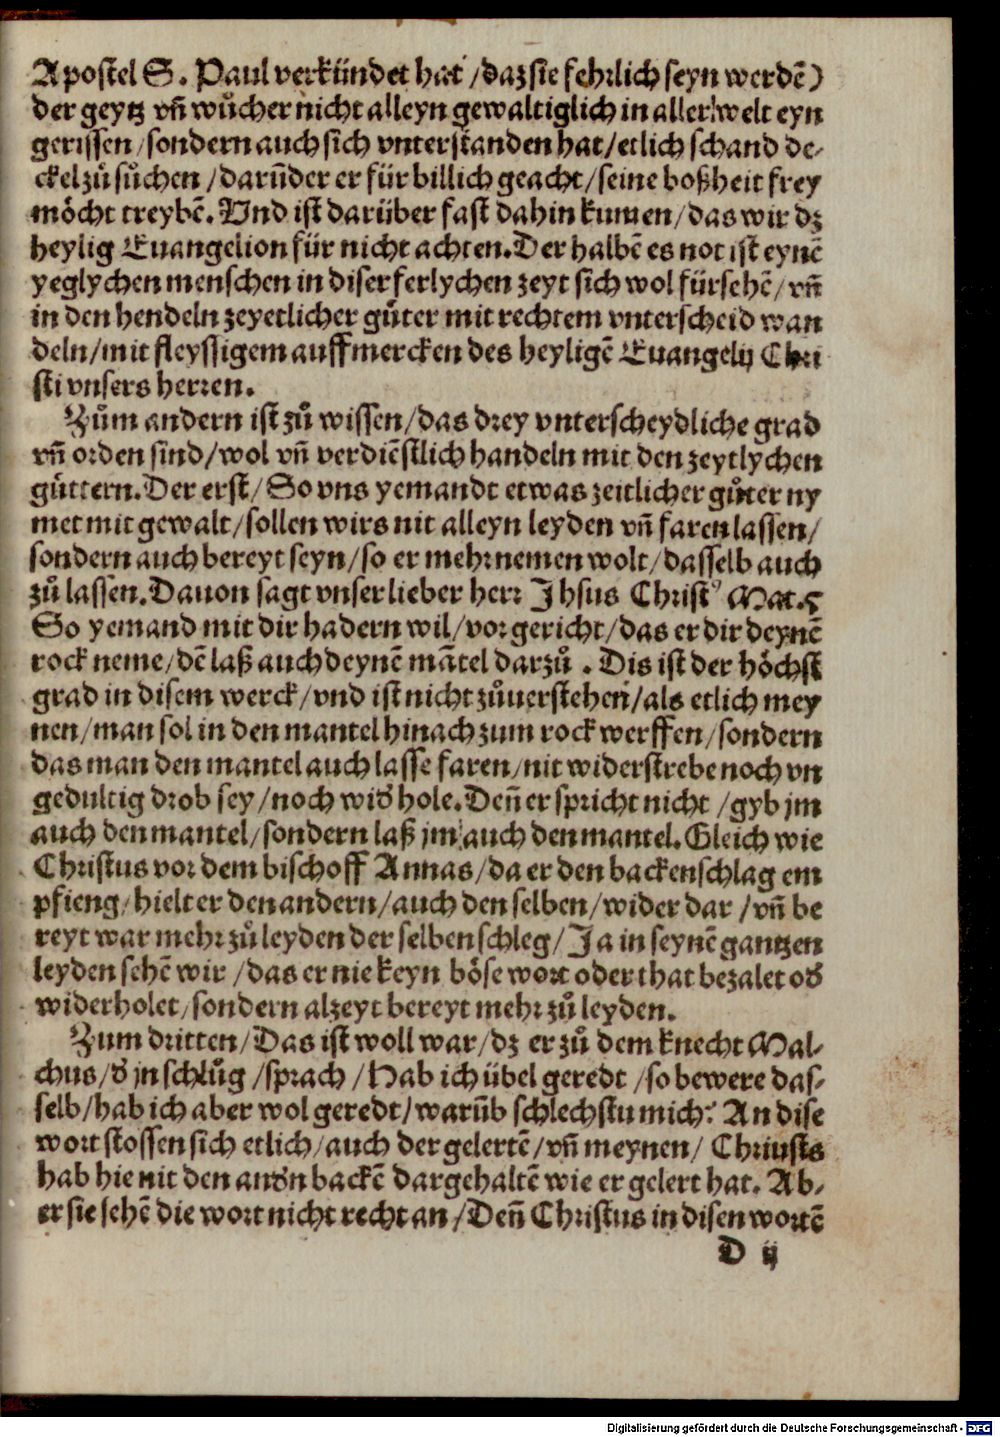 Apostel S. Paul verkündet hat /daz sie fehrlich seyn werdē)
der geytz vn̄ wůcher nicht alleyn gewaltiglich in aller welt eyn
gerissen/sondern auch sich vnterstanden hat/etlich schand de-
ckel zů sůchen /darūder er für billich geacht/seine boßheit frey
möcht treybē. Vnd ist darüber fast dahin kumen/das wir dz
heylig Euangelion für nicht achten. Der halbē es not ist eynē
yeglychen menschen in diser ferlychen zeyt sich wol fürsehē/vn̄
in den hendeln zeyetlicher gůter mit rechtem vnterscheid wan
deln/mit fleyssigem auffmercken des heyligē Euangelij Chri
sti vnsers herren.
Zům andern ist zů wissen/das drey vnterscheydliche grad
vn̄ orden sind/wol vn̄ verdiēstlich handeln mit den zeytlychen
gůttern. Der erst/ So vns yemandt etwas zeitlicher gůter ny
met mit gewalt/sollen wirs nit alleyn leyden vn̄ faren lassen/
sondern auch bereyt seyn/so er mehr nemen wolt/dasselb auch
zů lassen. Dauon sagt vnser lieber herr Jhsus Christꝰ Mat. 5
So yemand mit dir hadern wil/vor gericht/das er dir deynē
rock neme/dē laß auch deynē mātel darzů . Dis ist der höchst
grad in disem werck/vnd ist nicht zůuerstehen/als etlich mey
nen/man sol in den mantel hinach zum rock werffen/sondern
das man den mantel auch lasse faren/nit widerstrebe noch vn
gedultig drob sey/noch wid' hole. Den̄ er spricht nicht /gyb jm
auch den mantel/sondern laß jm auch den mantel. Gleich wie
Christus vor dem bischoff Annas/da er den backenschlag em
pfieng/hielt er den andern/auch den selben/wider dar /vn̄ be
reyt war mehr zů leyden der selben schleg/Ja in seynē gantzen
leyden sehē wir /das er nie keyn böse wort oder that bezalet od'
widerholet/sondern alzeyt bereyt mehr zů leyden.
Zum dritten/Das ist woll war/dz er zů dem knecht Mal-
chus/d' jn schlůg /sprach /Hab ich übel geredt /so bewere das-
selb/hab ich aber wol geredt/warūb schlechstu mich? An dise
wort stossen sich etlich/auch der gelertē/vn̄ meynen/ Chriusts
hab hie nit den and'n backē dargehaltē wie er gelert hat. Ab-
er sie sehē die wort nicht recht an/Den̄ Christus in disen wortē
D ij
Digitalisierung gefördert durch die Deutsche Forschungsgemeinschaft - DFG